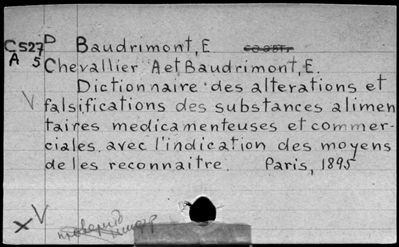 C527 D Baudrimont, E
A 5 Chevallier A et Baudrimont, E.
Dictionnaire des alterations et
V falsifications des substances alimen
taires medicamenteuses et commer-
ciales avec l'indication des moyens
de les reconnaitre. Paris, 1895
xV